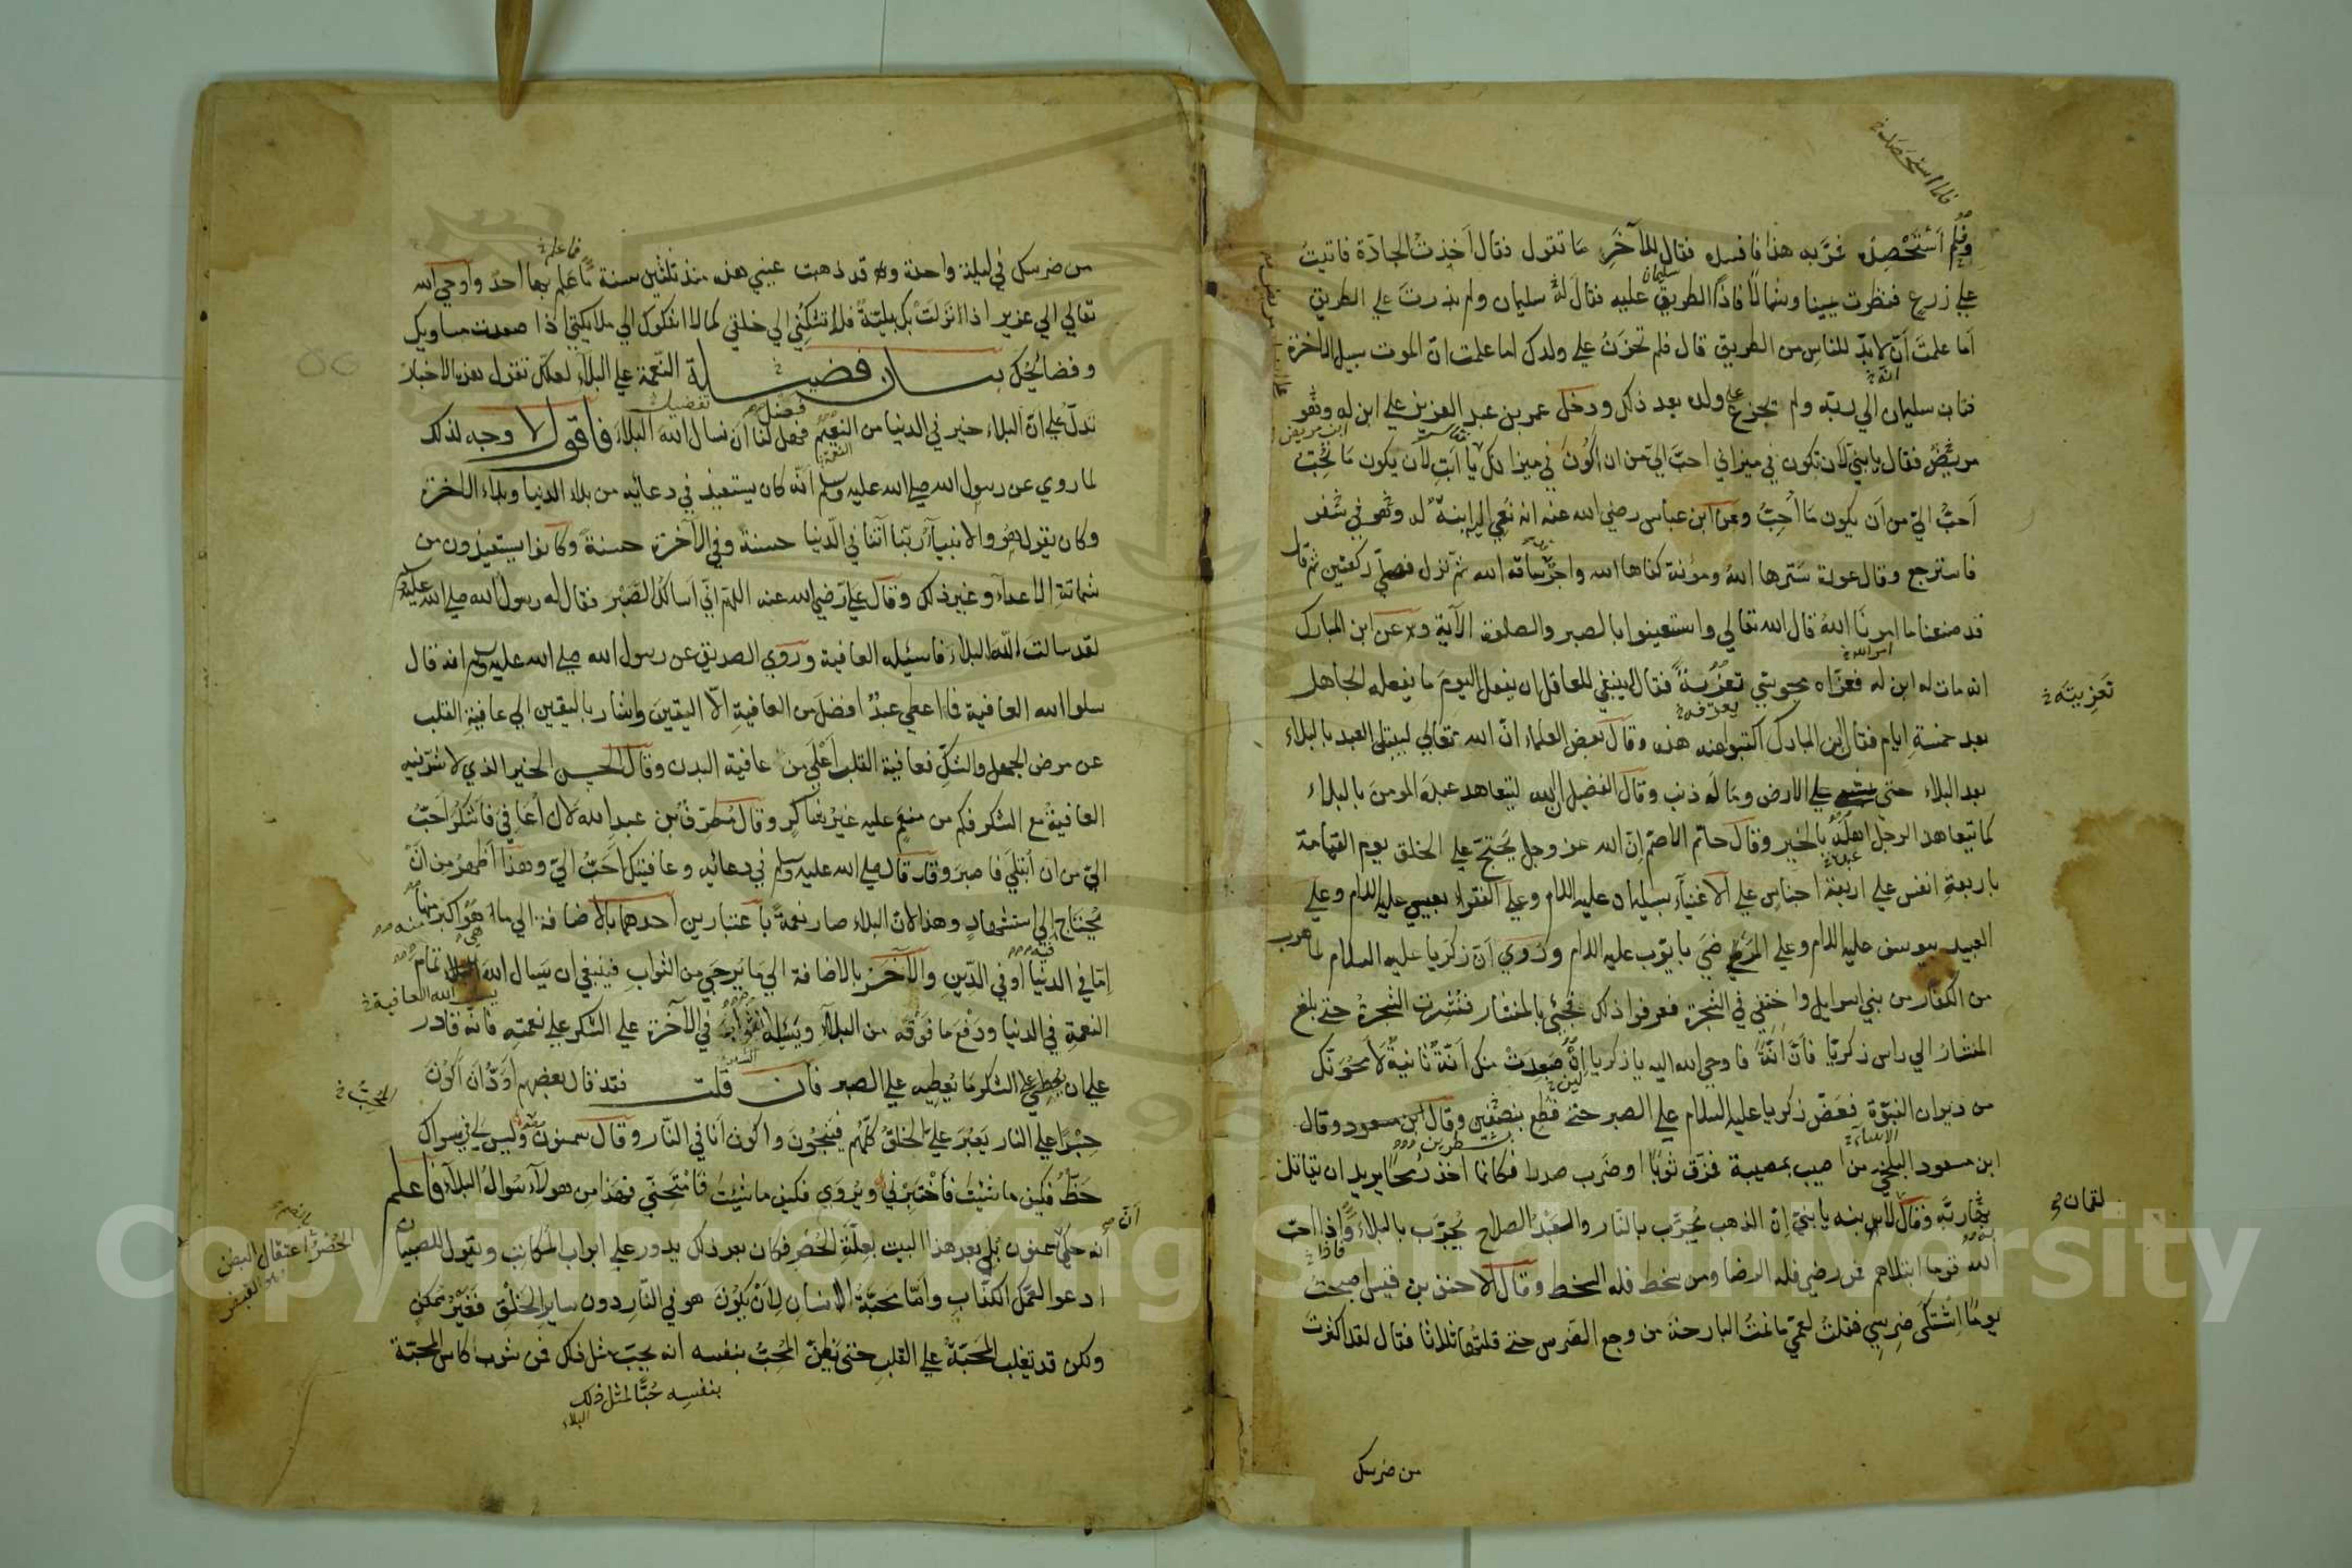 فلما استحصد
ولم أستحصد مر به هذا فافسده فقال للآخر ما تقول فقال أخذت الجادة فاتيت
علي زرع فنظرت يمينا وشمالا فاذا الطريق عليه فقال له سليمان ولم بذرت علي الطريق
اما علمت أن لابد للناس من الطريق قال فلم تحزن علي ولدك اما علمت ان الموت سبيل الاخرة
فتاب سليمان الي ربه ولم يجزع علي ولد بعد ذلك ودخل عمر بن عبد العزيز علي ابن له وهو
مريض فقال يا بني لان تكون في ميزاني احب الي من ان أكون في ميزانك يا ابت لأن يكون ما تحب
أحب الي من أن يكون ما أحب وعن ابن عباس رضي الله عنه انه نعي اليه ابنة له وهو في سفر
فاسترجع وقال عورة سترها الله ومؤنة كفاها الله واجر ساقه الله ثم نزل فصلي ركعتين ثم قال
قد صنعنا ما امرنا الله قال الله تعالي واستعينوا بالصبر والصلوة الآية وعن ابن المبارك
انه مات له ابن له فعزاه مجوسي تعزية فقال ينبغي للعاقل ان يفعل اليوم ما يفعله الجاهل
تعزيته
بعد خمسة ايام فقال ابن المبارك اكتبوا عنه هذه وقال بعض العلماء ان الله تعالي ليبتلي العبد بالبلاء
بعد البلاء حتي يمشي علي الارض وما له ذنب وقال الفضيل ان الله ليتعاهد عبده المومن بالبلاء
كما يتعاهد الرجل اهله بالخير وقال حاتم الاصم ان الله عز وجل يحتج علي الخلق يوم القيامة
باربعة انفس علي اربعة اجناس علي الاغنياء بسليمان عليه السلام وعلي الفقراء بعيسي عليه السلام وعلي
العبيد بيوسف عليه السلام وعلي المرضي بايوب عليه السلام وروي أن زكريا عليه السلام لما هرب
من الكفار من بني اسرايل واختفي في الشجرة فعرفوا ذلك فجيئ بالمنشار فنشرت الشجرة حتي بلغ
المنشار الي راس زكريا فأن أنة فاوحي الله اليه يا زكريا صعدت منك أنة ثانية لأمحونك
من ديوان النبوة فعض زكريا عليه السلام علي الصبر حتي قطع بنصفين وقال ابن مسعود وقال
ابن مسعود البلخي من اصيب بمصيبة فمزق ثوبا او ضرب صدرا فكانما اخذ رمحا يريد ان يقاتل
به ربه وقال لابنه يا بني ان الذهب يجرب بالنار والعبد الصلاح يجرب بالبلاء واذا احب
لقمان
الله قوما ابتلاهم فمن رضي فله الرضا ومن سخط فله السخط وقال الاحنف بن قيس اصبحت
يوما اشتكي ضرسي فقلت لعمي ما نمت البارحة من وجع الضرس حتي قلتها ثلاثا فقال لقد اكثرت
من ضرسك
من ضرسك في ليلة واحدة وقد ذهبت عيني هذه منذ ثلثين سنة ما علم بها أحد واوحي الله
تعالي الي عزير اذا نزلت بك بلية فلا تشكني الي خلقي كما لا اشكوك الي ملايكتي اذا صعدت مساويك
وفضائحك بيان فضيلة النعمة علي البلاء لعلك تقول هذه الاخبار
تدل علي ان البلاء خير في الدنيا من النعيم فهل لنا أن نسال الله البلاء فاقول لا وجه لذلك
لما روي عن رسول الله صلي الله عليه وسلم أنه كان يستعيذ في دعائه من بلاء الدنيا وبلاء الاخرة
وكان يقول هو والانبياء ربنا آتنا في الدنيا حسنة وفي الآخرة حسنة وكانوا يستعيذون من
شماتة الاعداء وغير ذلك وقال علي رضي الله عنه اللهم اني أسألك الصبر فقال له رسول الله صلي الله عليه
لقد سالت الله البلاء فاسئله العافية وروي الصديق عن رسول الله صلي الله عليه وسلم انه قال
سلوا الله العافية فما اعطي عبد افضل من العافية الا اليقين واشار باليقين الي عافية القلب
عن مرض الجهل والشك فعافية القلب أعلي من عافية البدن وقال الحسن الخير الذي لا شر فيه
العافية مع الشكر فكم من منعم عليه غير شاكر وقال مطرف بن عبد الله لان أعافي فأشكر أحب
الي من ان أبتلي فاصبر وقد قال صلي الله عليه وسلم في دعائه وعافيتك أحب الي وهذا أظهر من أن
يحتاج إلي استشهاد وهذا لان البلاء صار نعمة باعتبارين احدهما بالاضافة الي ما هو اكبر منها
إما في الدنيا أو في الدين والآخر بالاضافة الي ما يرجي من الثواب فينبغي ان يسال الله تمام
النعمة في الدنيا ودفع ما فوقه من البلاء ويسئله الثواب في الآخرة علي الشكر علي نعمته فانه قادر
علي ان يعطي علي الشكر ما يعطيه علي الصبر فان قلت فقد قال بعضهم أود ان أكون
جسرا علي النار يعبر علي الخلق كلهم فينجون واكون أنا في النار وقال سمنون وليس لي في سواك
حظ فكيف ما شئت فأختبرني ويروي فكيف ما شئت فامتحني فهذا من هولاء سوال البلاء فاعلم
أنه حكي سمنون بلي بعد هذا البيت بعلة الحصر فكان بعد ذلك يدور علي ابواب المكاتب ويقول للصبيان
ادعوا لعمكم الكذاب واما محبة الانسان لأن يكون هو في النار دون ساير الخلق فغير ممكن
ولكن قد تغلب المحبة علي القلب حتي يظن المحب بنفسه انه يحب مثل ذلك فمن شرب كاس المحبة
بنفسه حبا لمثل ذلك
البلاء